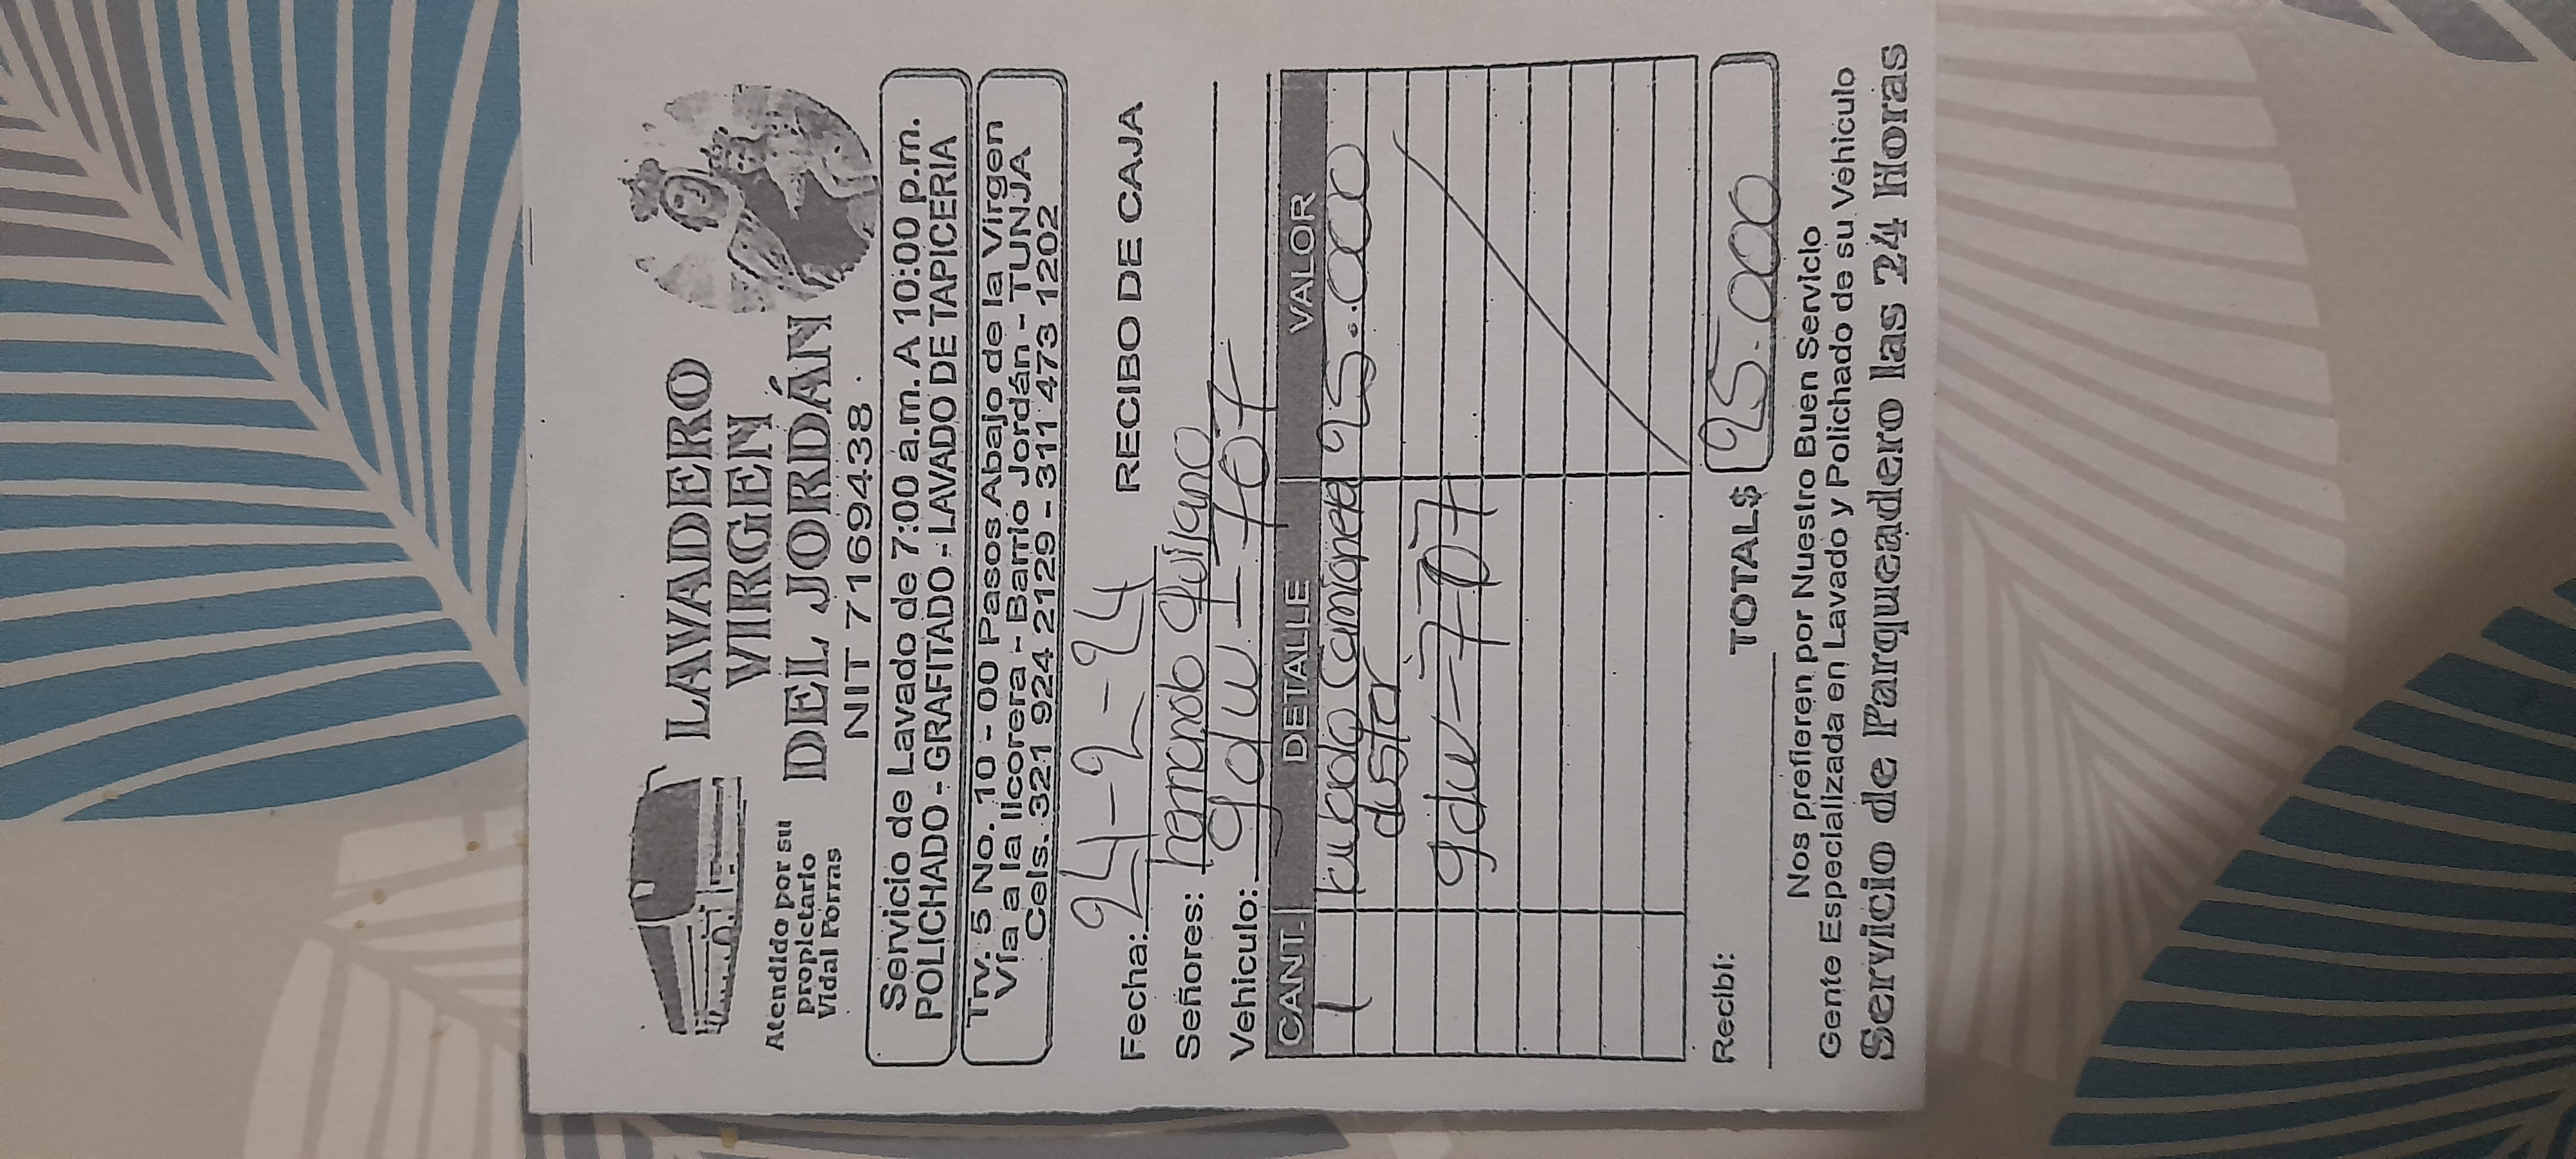 LAVADERO
VIRGEN
DEL JORDÁN
Atendido por su
propietario
Vidal Porras
NIT 7169438
Servicio de Lavado de 7:00 a.m. A 10:00 p.m.
POLICHADO - GRAFITADO - LAVADO DE TAPICERIA
Trv. 5 No. 10 - 00 Pasos Abajo de la Virgen
Vía a la licorera - Barrio Jordán - TUNJA
Cels. 321 924 2129 - 311 473 1202
RECIBO DE CAJA
Fecha: 24-2-24
Señores: hernando quijano
Vehiculo: gdw-707
CANT. DETALLE VALOR
1 camioneta 25.000
duster
gdw-707
TOTAL$ 25.000
Recibí:
Nos prefieren por Nuestro Buen Servicio
Gente Especializada en Lavado y Polichado de su Vehiculo
Servicio de Parqueadero las 24 Horas